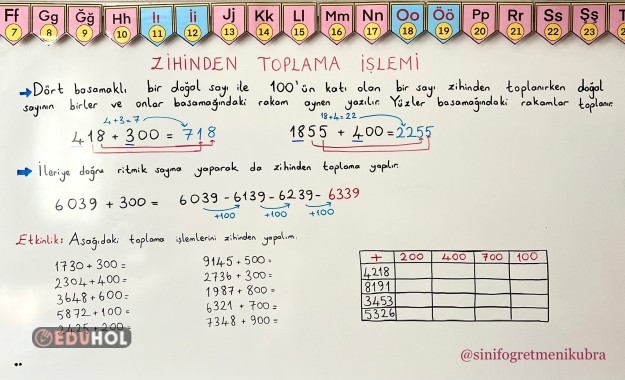 Ff Gg Ğğ Hh Iı İi Jj Kk Ll Mm Nn Oo Öö Pp Rr Ss Şş T
7 8 9 10 11 12 13 14 15 16 17 18 19 20 21 22 23 2
ZİHİNDEN TOPLAMA İŞLEMİ
Dört basamaklı bir doğal sayı ile 100'ün katı olan bir sayı zihinden toplanırken doğal
sayının birler ve onlar basamağındaki rakam aynen yazılır. Yüzler basamağındaki rakamlar toplanır.
4+3=7
18+4=22
418 + 300 = 718
1855 + 400 = 2255
İleriye doğru ritmik sayma yaparak da zihinden toplama yapılır.
6039 + 300 = 6039 - 6139 - 6239 - 6339
+100 +100 +100
Etkinlik: Aşağıdaki toplama işlemlerini zihinden yapalım.
1730 + 300 =
2304 + 400 =
3648 + 600 =
5872 + 100 =
2425 + 200 =
9145 + 500 =
2736 + 300 =
1987 + 800 =
6321 + 700 =
7348 + 900 =
+ 200 400 700 100
4218
8191
3453
5326
EDUHOL
@sinifogretmenikubra